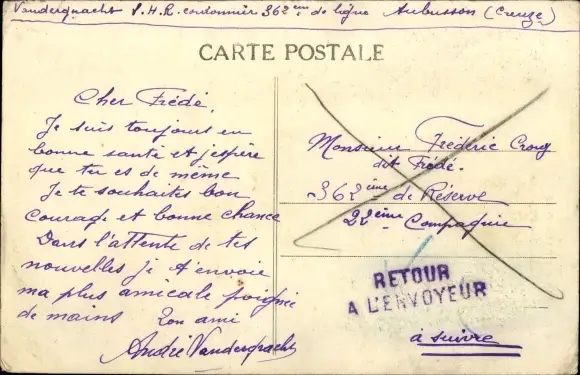 Vandergracht S.H.R. cordonnier 362ème de ligne Aubusson (Creuze)
CARTE POSTALE
Cher Frédé.
Je suis toujours en
bonne santé et j'espère
que tu es de même
Je te souhaites bon
courage et bonne chance
Dans l'attente de tes
nouvelles je t'envoie
ma plus amicale poignée
de mains Ton ami
André Vandergracht
Monsieur Frédéric
dit Frédé.
362ème de Réserve
22ème Compagnie
RETOUR
A L'ENVOYEUR
à suivre